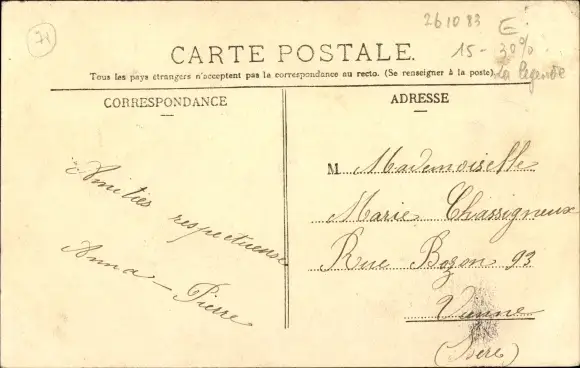 74
261083
E
15 - 30%
La Légende
CARTE POSTALE.
Tous les pays étrangers n'acceptent pas la correspondance au recto. (Se renseigner à la poste).
CORRESPONDANCE
Amitiés respectueuse
Anna Pierre
ADRESSE
M Mademoiselle
Marie Chassigneux
Rue Bozon 93
Vienne
(Isère)